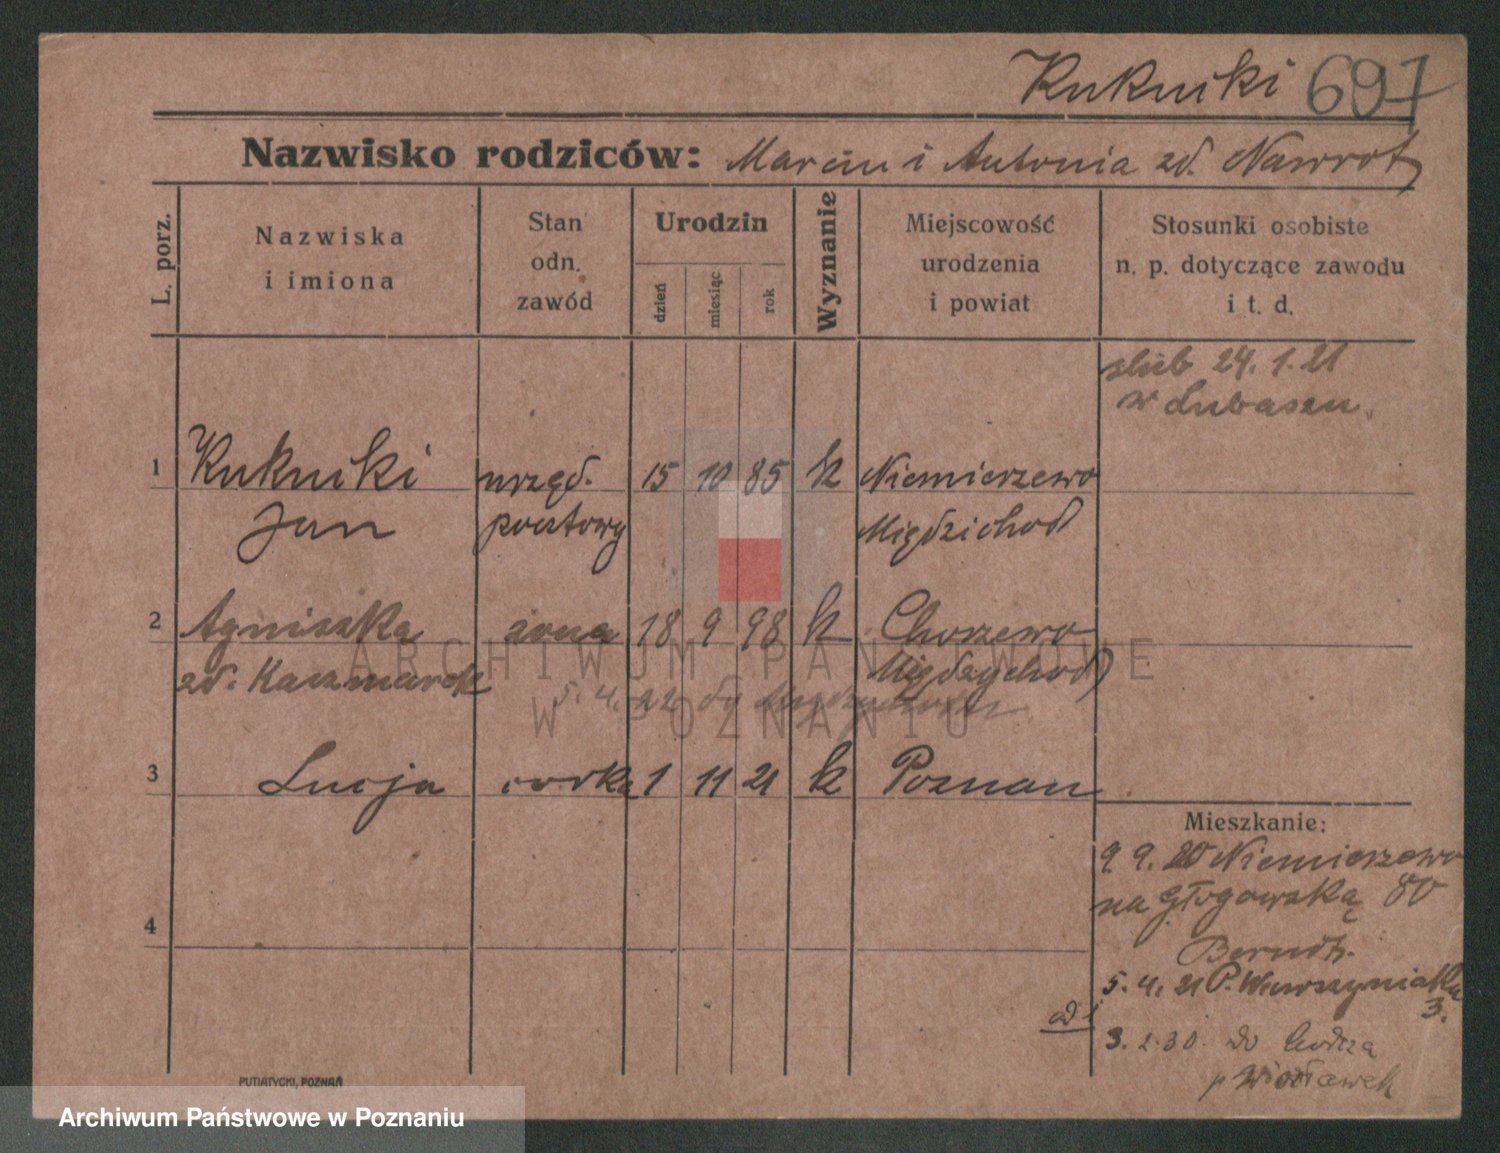 Kukucki 697
Nazwisko rodziców: Marcin i Antonia zd. Nawrot
L. porz.
Nazwiska
i imiona
Stan
odn.
zawód
Urodzin
dzień
miesiąc
rok
Wyznanie
Miejscowość
urodzenia
i powiat
Stosunki osobiste
n. p. dotyczące zawodu
i t. d.
ślub 24. 1. 21
w Lubaszu
1 urzęd. 15 10 85 k Niemierzewo
Jan pocztowy Międzichod
2 Agniszka żona 18 9 98 k Chorzewo
zd. Kaczmarek Międzychod
5. 4. 22
3 Lucja corka 1 11 21 k Poznan
Mieszkanie:
9. 9. 20 Niemierzewo
na Głogowska 80
Berndt.
5. 4. 21 P. Wawrzyniaka
3.
3. 2. 30. do
4
PUTIATYCKI, POZNAŃ
ARCHIWUM PAŃSTWOWE
W POZNANIU
Archiwum Państwowe w Poznaniu